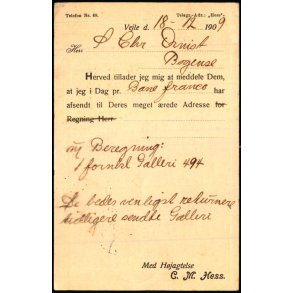 Telefon Nr. 69.
Telegr.-Adr.: "Hess"
Vejle d. 18-12 1909
Herr P Chr Ernist
Bogense
Herved tillader jeg mig at meddele Dem,
at jeg i Dag pr. Bane franco har
afsendt til Deres meget ærede Adresse for
Regning Herr
Beregning:
1 fornikl Galleri 494
De bedes venligst returnere
tidligere sendte Galleri
Med Højagtelse
C. M. Hess.